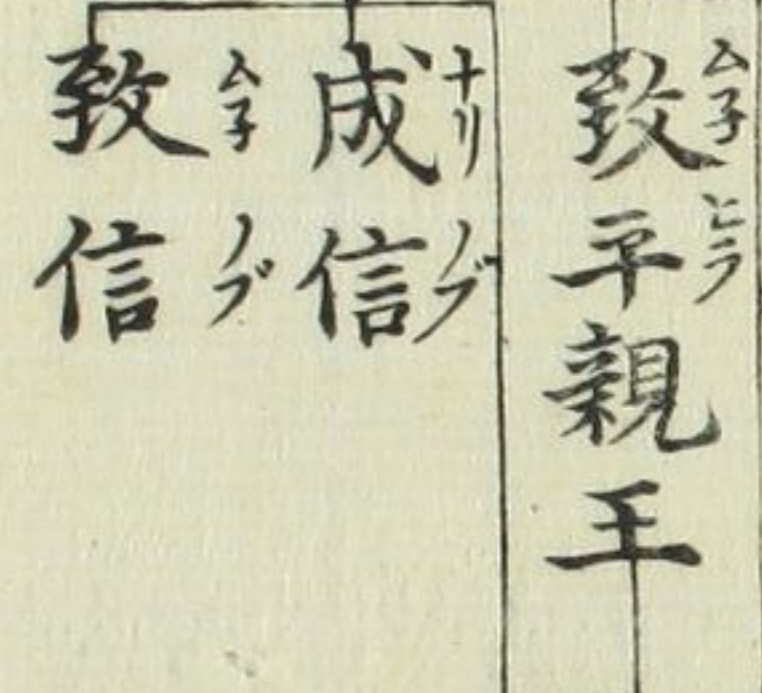 致平親王
ムネ ヒラ
成信
ナリ ノブ
致信
ムネ ノブ